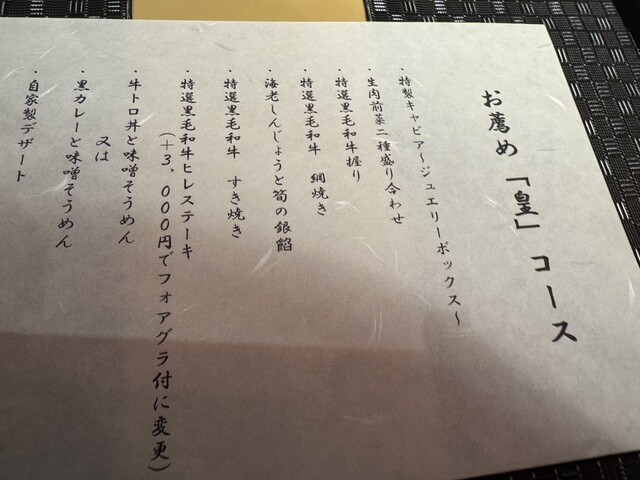 お薦め「皇」コース
・特製キャビア～ジュエリーボックス～
・生肉前菜二種盛り合わせ
・特選黒毛和牛握り
・特選黒毛和牛 網焼き
・海老しんじょうと筍の銀餡
・特選黒毛和牛 すき焼き
・特選黒毛和牛ヒレステーキ
(+3,000円でフォアグラ付に変更)
・牛トロ丼と味噌そうめん
又は
・黒カレーと味噌そうめん
・自家製デザート